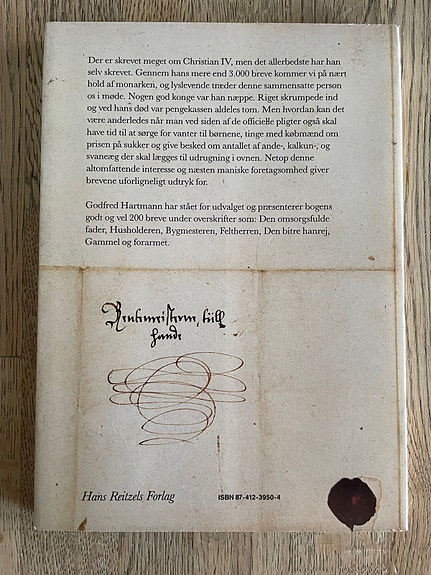 Der er skrevet meget om Christian IV, men det allerbedste har han
selv skrevet. Gennem hans mere end 3.000 breve kommer vi på nært
hold af monarken, og lyslevende træder denne sammensatte person
os i møde. Nogen god konge var han næppe. Riget skrumpede ind
og ved hans død var pengekassen aldeles tom. Men hvordan kan det
være anderledes når man ved siden af de officielle pligter også skal
have tid til at sørge for vanter til børnene, tinge med købmænd om
prisen på sukker og give besked om antallet af ande-, kalkun-, og
svaneæg der skal lægges til udrugning i ovnen. Netop denne
altomfattende interesse og næsten maniske foretagsomhed giver
brevene uforligneligt udtryk for.
Godfred Hartmann har stået for udvalget og præsenterer bogens
godt og vel 200 breve under overskrifter som: Den omsorgsfulde
fader, Husholderen, Bygmesteren, Feltherren, Den bitre hanrej,
Gammel og forarmet.
hande
Hans Reitzels Forlag
ISBN 87-412-3950-4